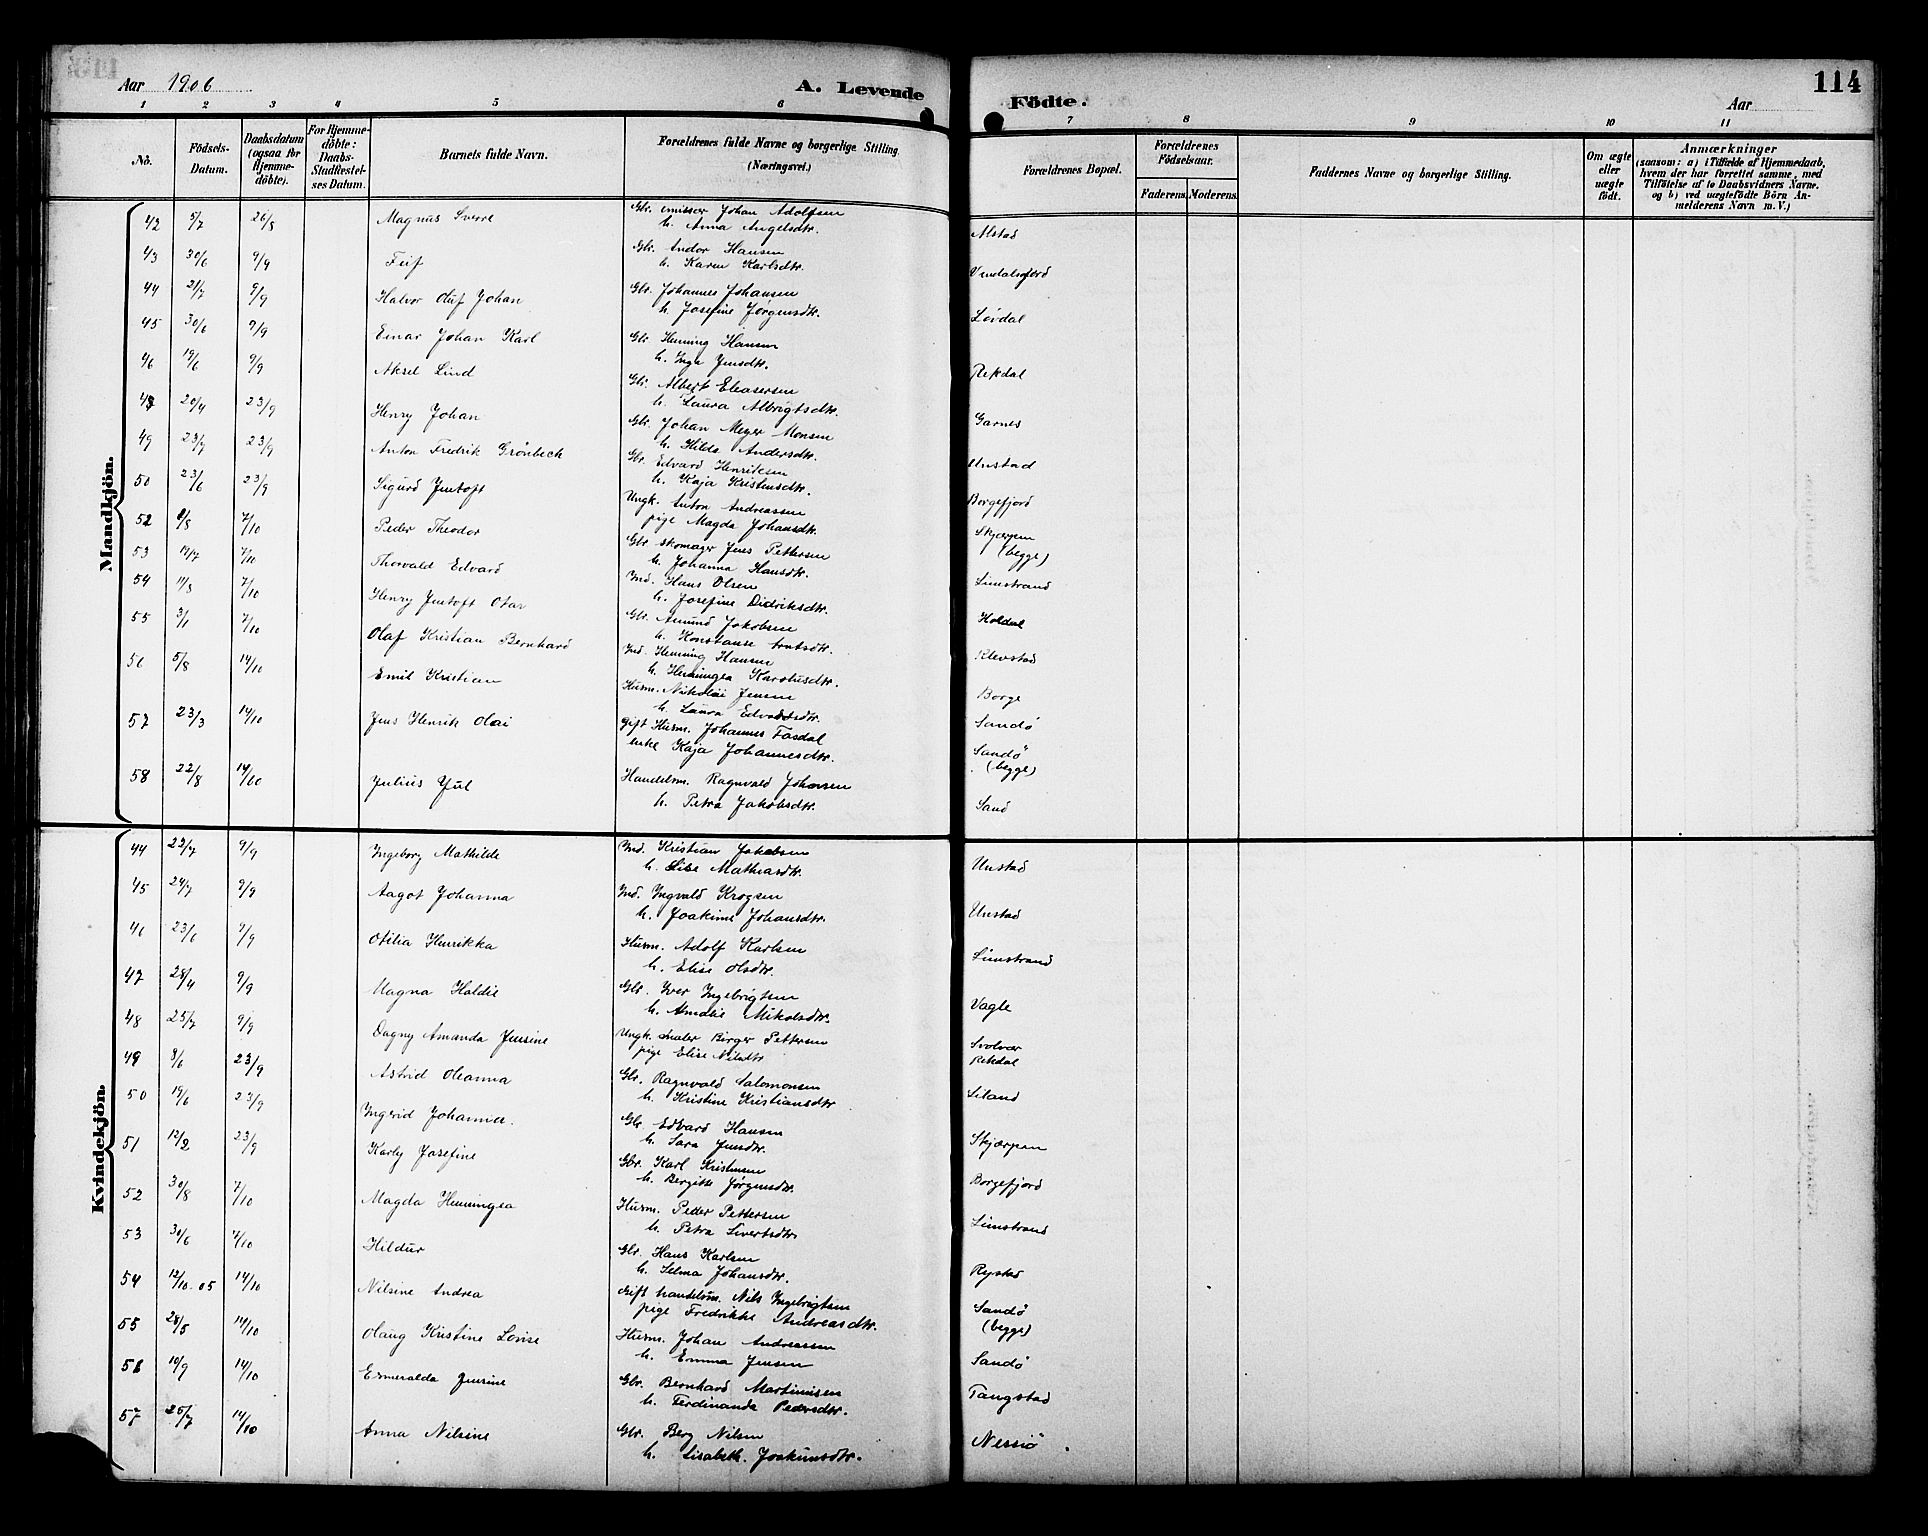 114
Aar 1906
A. Levende
Födte.
Aar
1 2 3 4 5 6 7 8 9 10 11
Nö.
Födsels-Datum.
Daabsdatum (ogsaa for Hjemme-döbte).
For Hjemme-döbte: Daabs-Stadfæstel-ses Datum.
Barnets fulde Navn.
Forældrenes fulde Navne og borgerlige Stilling. (Næringsvei.)
Forældrenes Bopæl.
Forældrenes Födselsaar.
Faderens. Moderens.
Faddernes Navne og borgerlige Stilling.
Om ægte eller uægte födt.
Anmærkninger
(saasom: a) i Tilfælde af Hjemmedaab, hvem der har forrettet samme, med Tilföielse af to Daabsvidners Navne. og b) ved uægtefödte Börn Anmelderens Navn m. V.)
Mandkjön.
42 5/7 26/8 Magnus Sverre Gbr. emissær Johan Adolfsen Alstad
h. Anna Angelsdtr.
43 30/6 9/9 Gbr. Andor Hansen
h. Karen Karlsdtr.
44 21/7 9/9 Halvor Oluf Johan Gbr. Johannes Johansen Løvdal
h. Josefine Jørgensdtr.
45 30/6 9/9 Einar Johan Karl Gbr. Henning Hansen Rekdal
h. Inga Jensdtr.
46 19/6 9/9 Aksel Lind Gbr. Albert Eleasersen Garnes
h. Laura Albrigtsdtr.
48 20/4 23/9 Henry Johan Gbr. Johan Meyer Monsen Unstad
h. Hilda Andersdtr.
49 23/7 23/9 Anton Fredrik Grönbech Gbr. Edvard Henriksen Borgefjord
h. Kaja Kristensdtr.
50 23/6 23/9 Sigurd Jentoft Ungk. Anton Andreassen Skjerpen
pige Magda Johansdtr. (begge)
52 8/8 7/10 Peder Theodor Gbr. skomager Jens Pettersen Limstrand
h. Johanna Hansdtr.
53 19/7 7/10 Thorvald Edvard Ind. Hans Olsen Holdal
h. Josefine Didriksdtr.
54 11/8 7/10 Henry Jentoft Otar Gbr. Amund Jakobsen Klevstad
h. Konstanse Arntsdtr.
55 3/1 7/10 Olaf Kristian Bernhard Ind. Henning Hansen Borge
h. Henningea Karolusdtr.
56 5/8 14/10 Emil Kristian Husm. Nikolai Jensen Sandö
h. Laura Edvardsdtr.
57 23/3 14/10 Jens Henrik Olai gift Husm. Johannes Fosdal Sandö
enke Kaja Johannesdtr. (begge)
58 22/8 14/10 Julius Jul Handelsm. Ragnvald Johansen Sand
h. Petra Jakobsdtr.
Kvindekjön.
44 22/7 9/9 Ingeborg Mathilde Ind. Kristian Jakobsen Unstad
h. Lise Mathiasdtr.
45 24/7 9/9 Aagot Johanna Ind. Ingvald Krogsen Unstad
h. Joakime Johansdtr.
46 23/6 9/9 Otilia Henrikka Husm. Adolf Karlsen Limstrand
h. Elise Olsdtr.
47 28/4 9/9 Magna Haldis Gbr. Iver Ingebrigtsen Vagle
h. Amalie Mikalsdtr.
48 25/7 9/9 Dagny Amanda Jensine Ungk. maler Birger Pettersen Svolvær
pige Elise Nilsdtr Rekdal
49 8/6 23/9 Astrid Oleanna Gbr. Ragnvald Salomonsen Liland
h. Kristine Kristiansdtr
50 19/6 23/9 Ingerid Johanna. Gbr. Edvard Hansen Skjærpen
h. Sara Jensdtr.
51 12/2 23/9 Karly Josefine Gbr. Karl Kristensen Borgefjord
h. Bergitte Jørgensdtr.
52 30/8 7/10 Magda Henningea Husm. Peder Pettersen Limstrand
h. Petra Sivertsdtr.
53 30/6 7/10 Hildur Gbr. Hans Karlsen Rystad
h. Selma Johansdtr.
54 12/10-05 14/10 Nilsine Andrea Gift handelsm. Nils Ingebrigtsen Sandö
pige Fredrikke Andreasdtr. (begge)
55 28/5 14/10 Olaug Kristine Lovise Husm. Johan Andreassen Sandö
h. Emma Jensen
56 10/9 14/10 Esmeralda Jensine Gbr. Bernhard Martinusen Tangstad
h. Ferdinanda Pedersdtr.
57 25/7 14/10 Anna Nilsine Gbr. Berg Nilsen Nessiö
h. Lisabeth. Joakimsdtr.